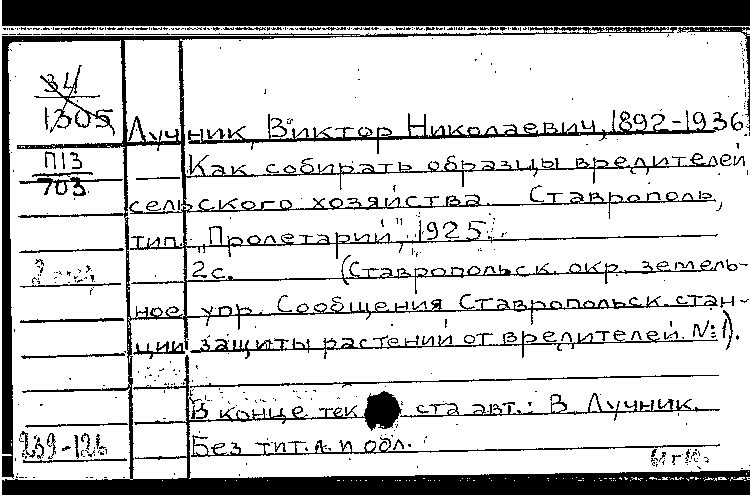 34/
1305
Лучник, Виктор Николаевич, 1892-1936
П13
703
Как собирать образцы вредителей
сельского хозяйства. Ставрополь,
тип. „Пролетарий", 1925.
2с. (Ставропольск. окр. земель-
ное упр. Сообщения Ставропольск. стан-
ции защиты растений от вредителей. №1).
В конце тек ста авт.: В. Лучник.
Без тит. л. и обл.
239-126